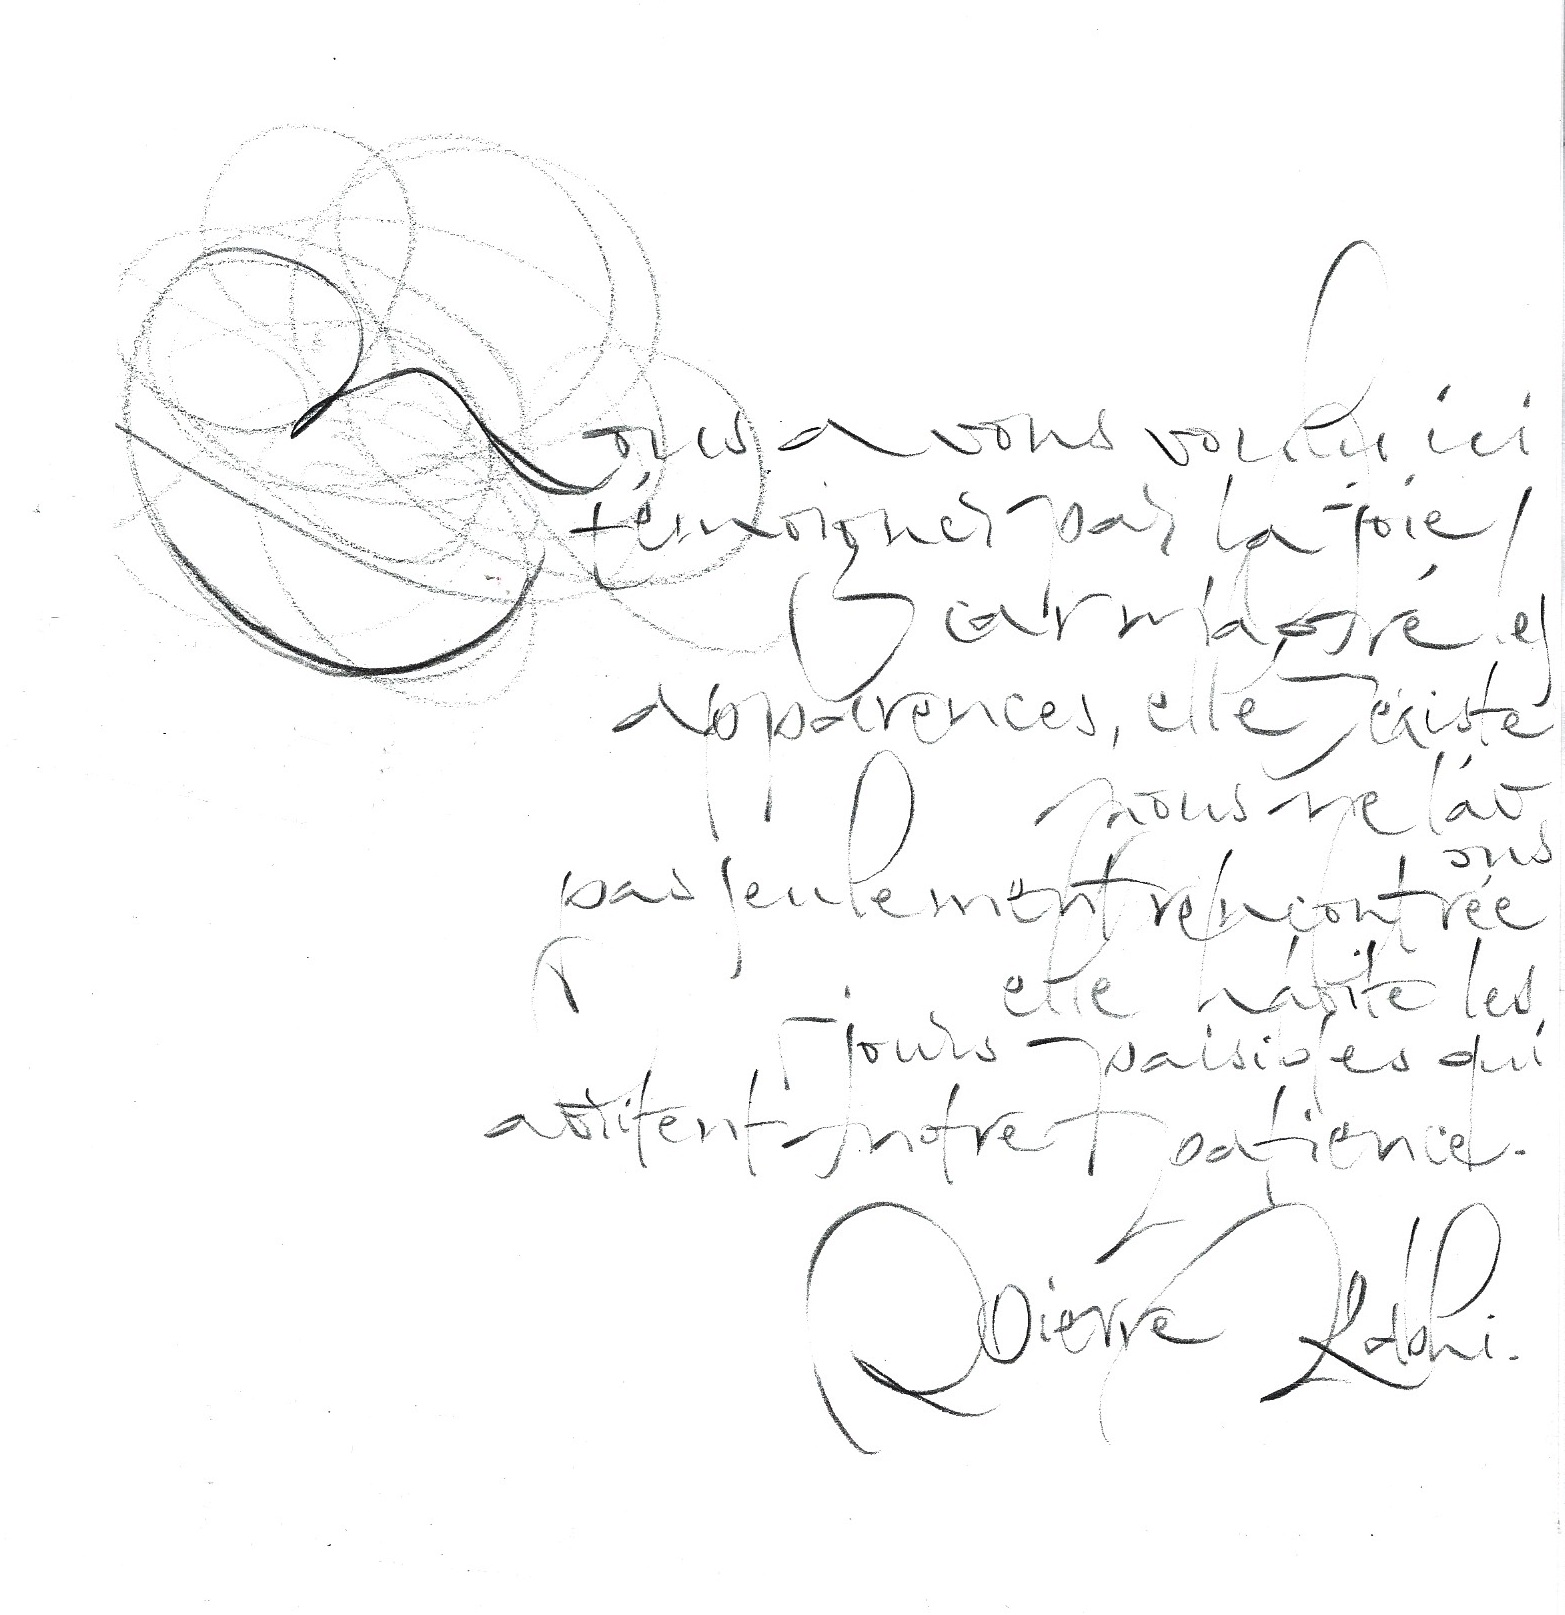 Nous avons voulu ici
témoigner par la joie
Car malgré les
apparences, elle existe
nous ne l'av
ons
pas seulement rencontrée
elle habite les
jours paisibles qui
notre patience.
Pierre Rabhi.